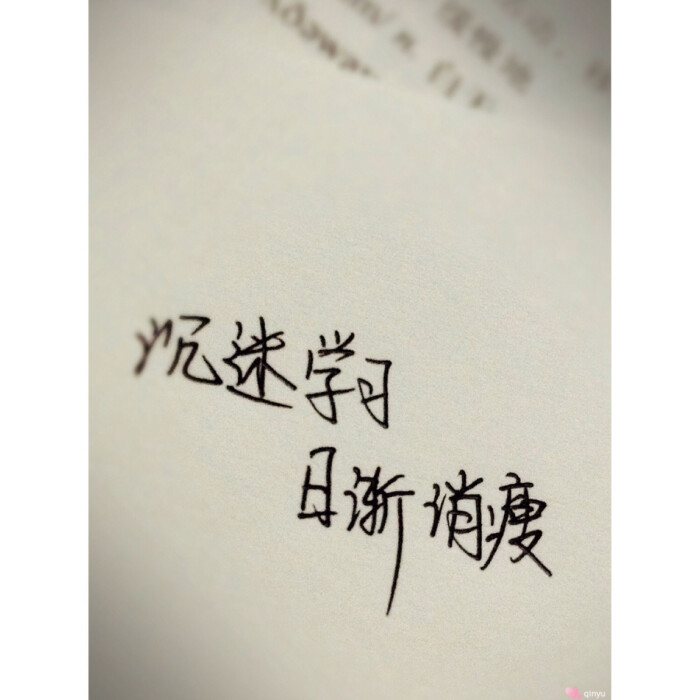 沉迷学习
日渐消瘦
qinyu